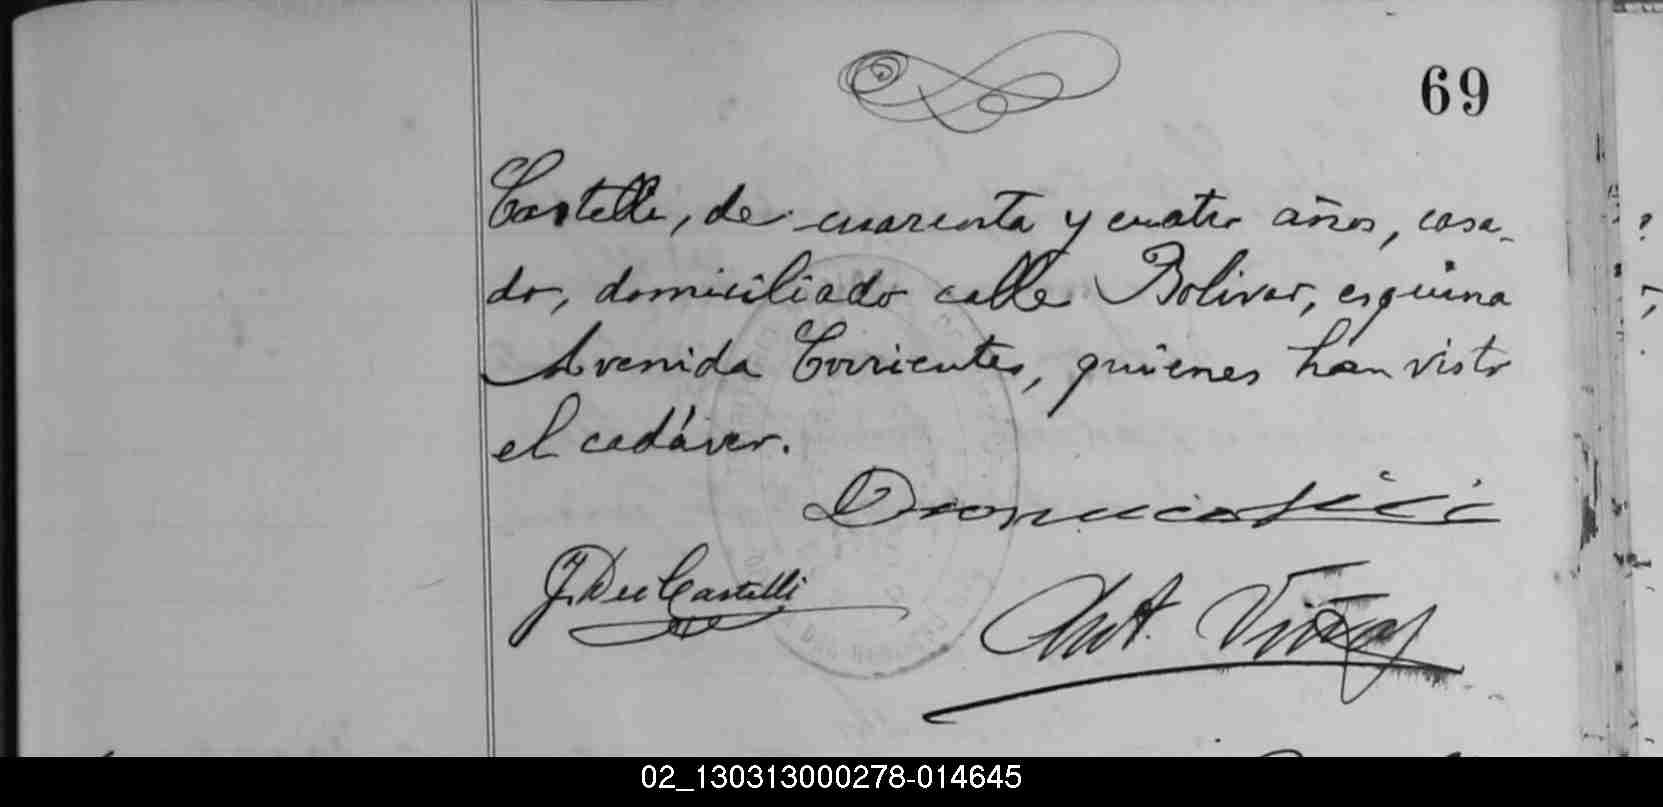 69
Castelli, de cuarenta y cuatro años, casa-
do, domiciliado calle Bolivar, esquina
Avenida Corrientes, quienes han visto
el cadáver.
J. Del Castelli
Ant. Viñas
02_130313000278-014645